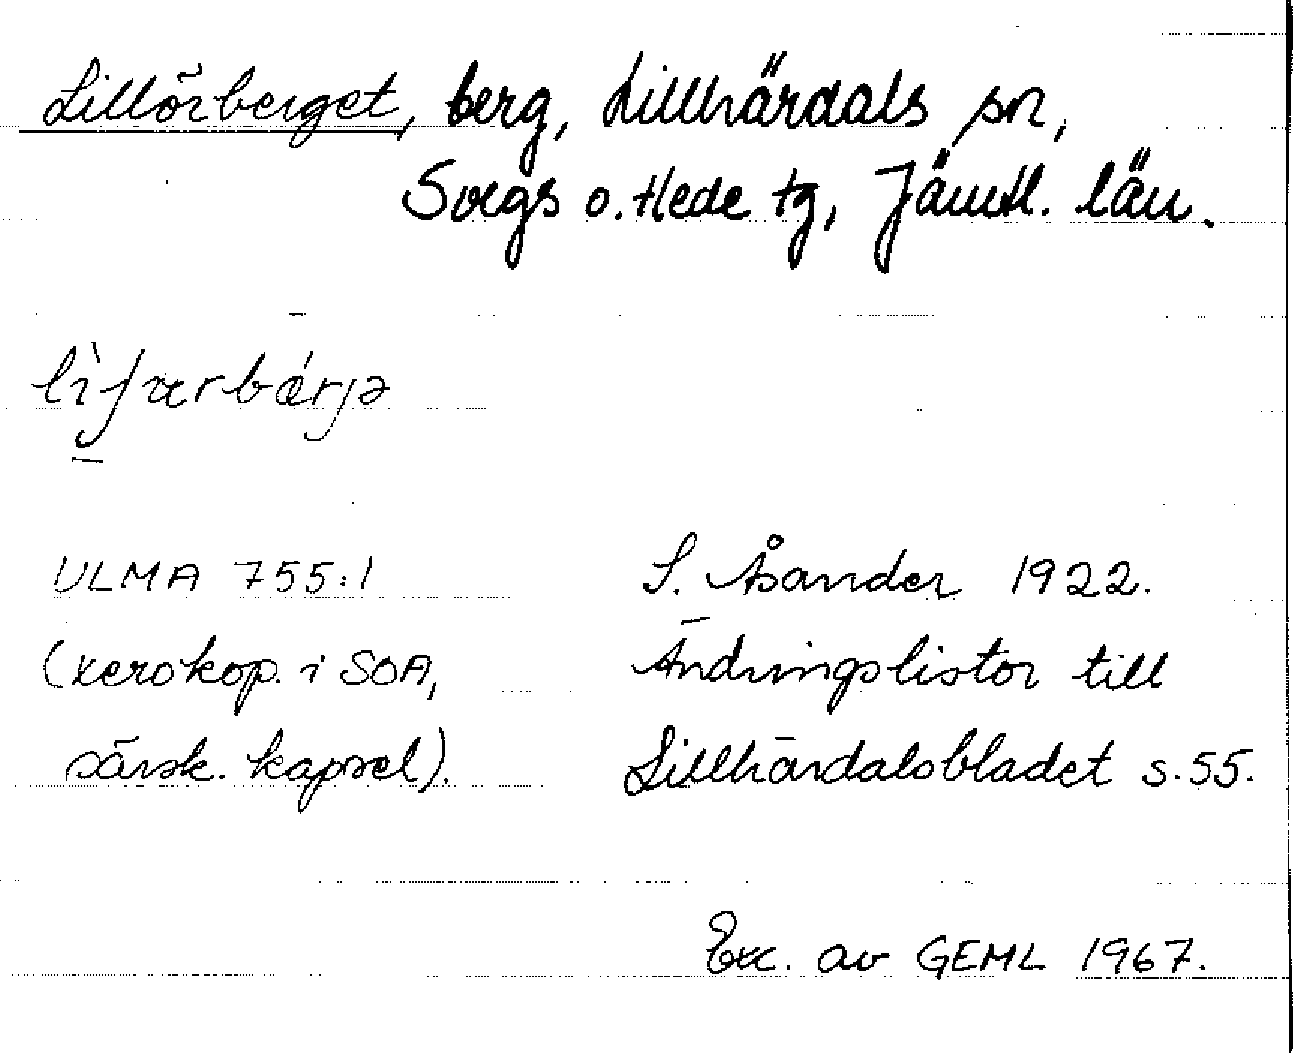 Lillörberget, berg, Lillhärdals sn,
Svegs o. Hede tg, Jämtl. län.
ULMA 755:1
S. Åsander 1922.
(xerokop. i SOA,
Ändringslistor till
särsk. kapsel).
Lillhärdalsbladet s. 55.
Exc. av GEML 1967.